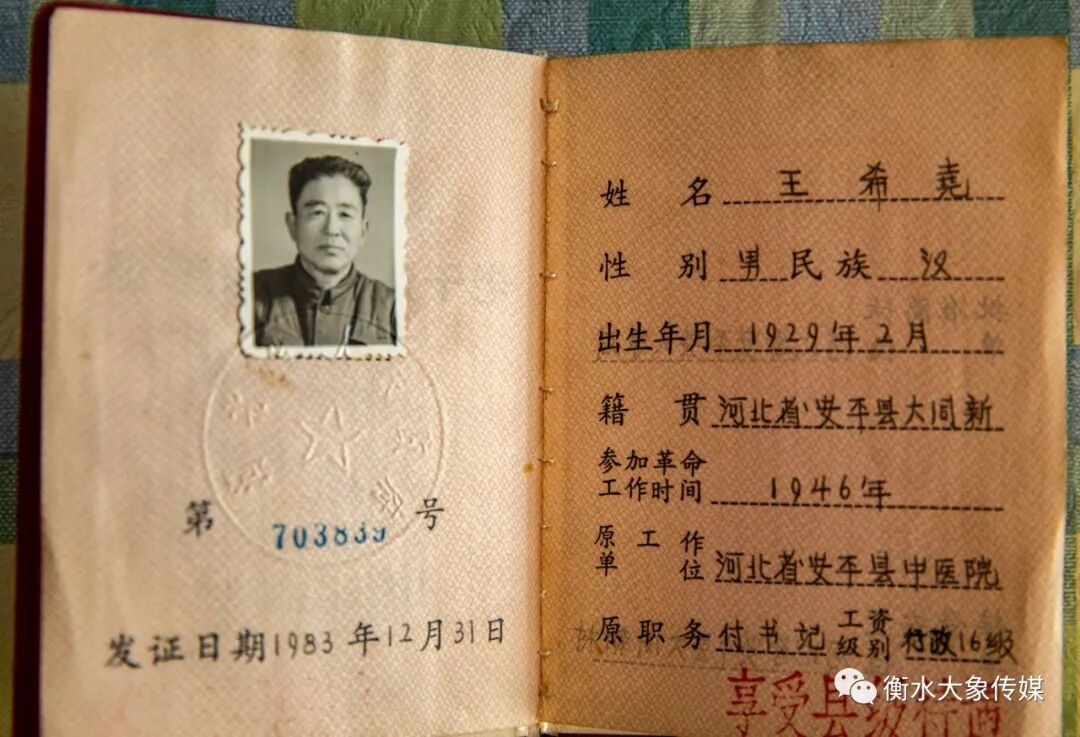 第 703839 号
发证日期1983年12月31日
姓名 王希尧
性别 男 民族 汉
出生年月 1929年2月
籍贯 河北省安平县大同新
参加革命
工作时间 1946年
原工作
单位 河北省安平县中医院
原职务 付书记 工资级别 行政16级
享受县级待遇
衡水大象传媒